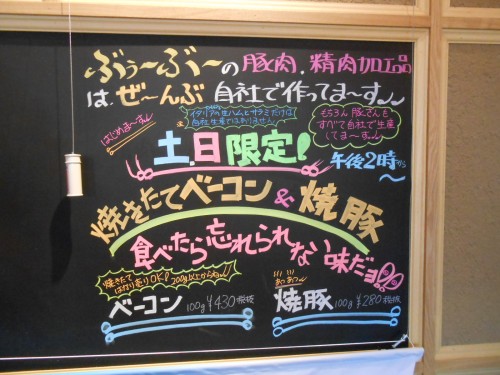 ぶぅ〜ぶ〜の豚肉、精肉加工品
は、ぜ〜んぶ自社で作ってま〜す
はじめま〜す
イタリアの生ハムとサラミだけは
自社生産ではありません。
もちろん豚さんも
すべて自社で生産
してま〜す
土、日限定!
午後2時から〜
焼きたてベーコン&焼豚
食べたら忘れられない味だョ!!
焼きたて
はかり売りOK! 200g以上からね
ベーコン 100g ¥430税抜
あつあつ
焼豚 100g ¥280税抜